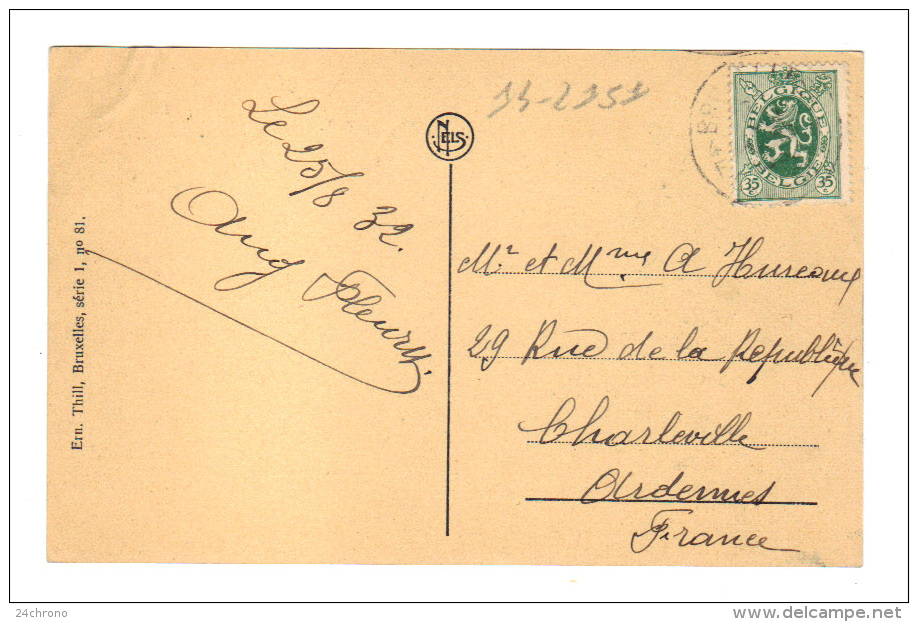 Le 25/8 32.
Aug Fleury.
Ern. Thill, Bruxelles, série 1, no 81.
NELS
BELGIQUE
BELGIE
35 c
35 c
Mr et Mme A Hureaux
29 Rue de la République
Charleville
Ardennes
France
24chrono
www.delcampe.net